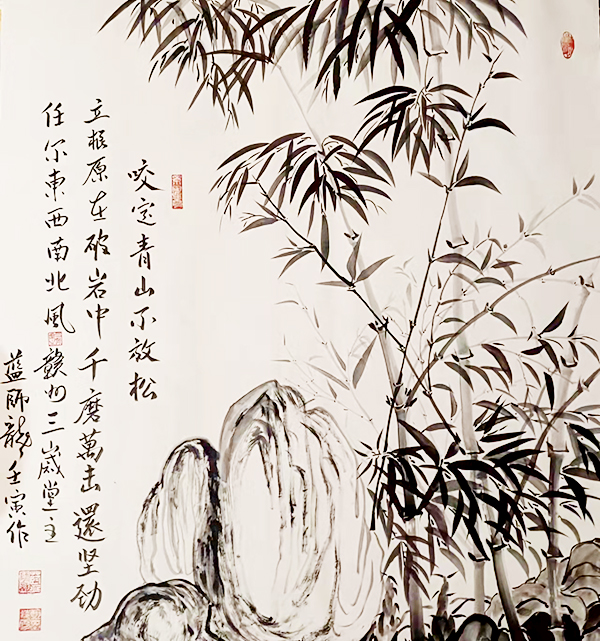 咬定青山不放松
立根原在破岩中千磨萬击還坚劲
任尔東西南北風 贛州三歲堂主
蓝师龍壬寅作